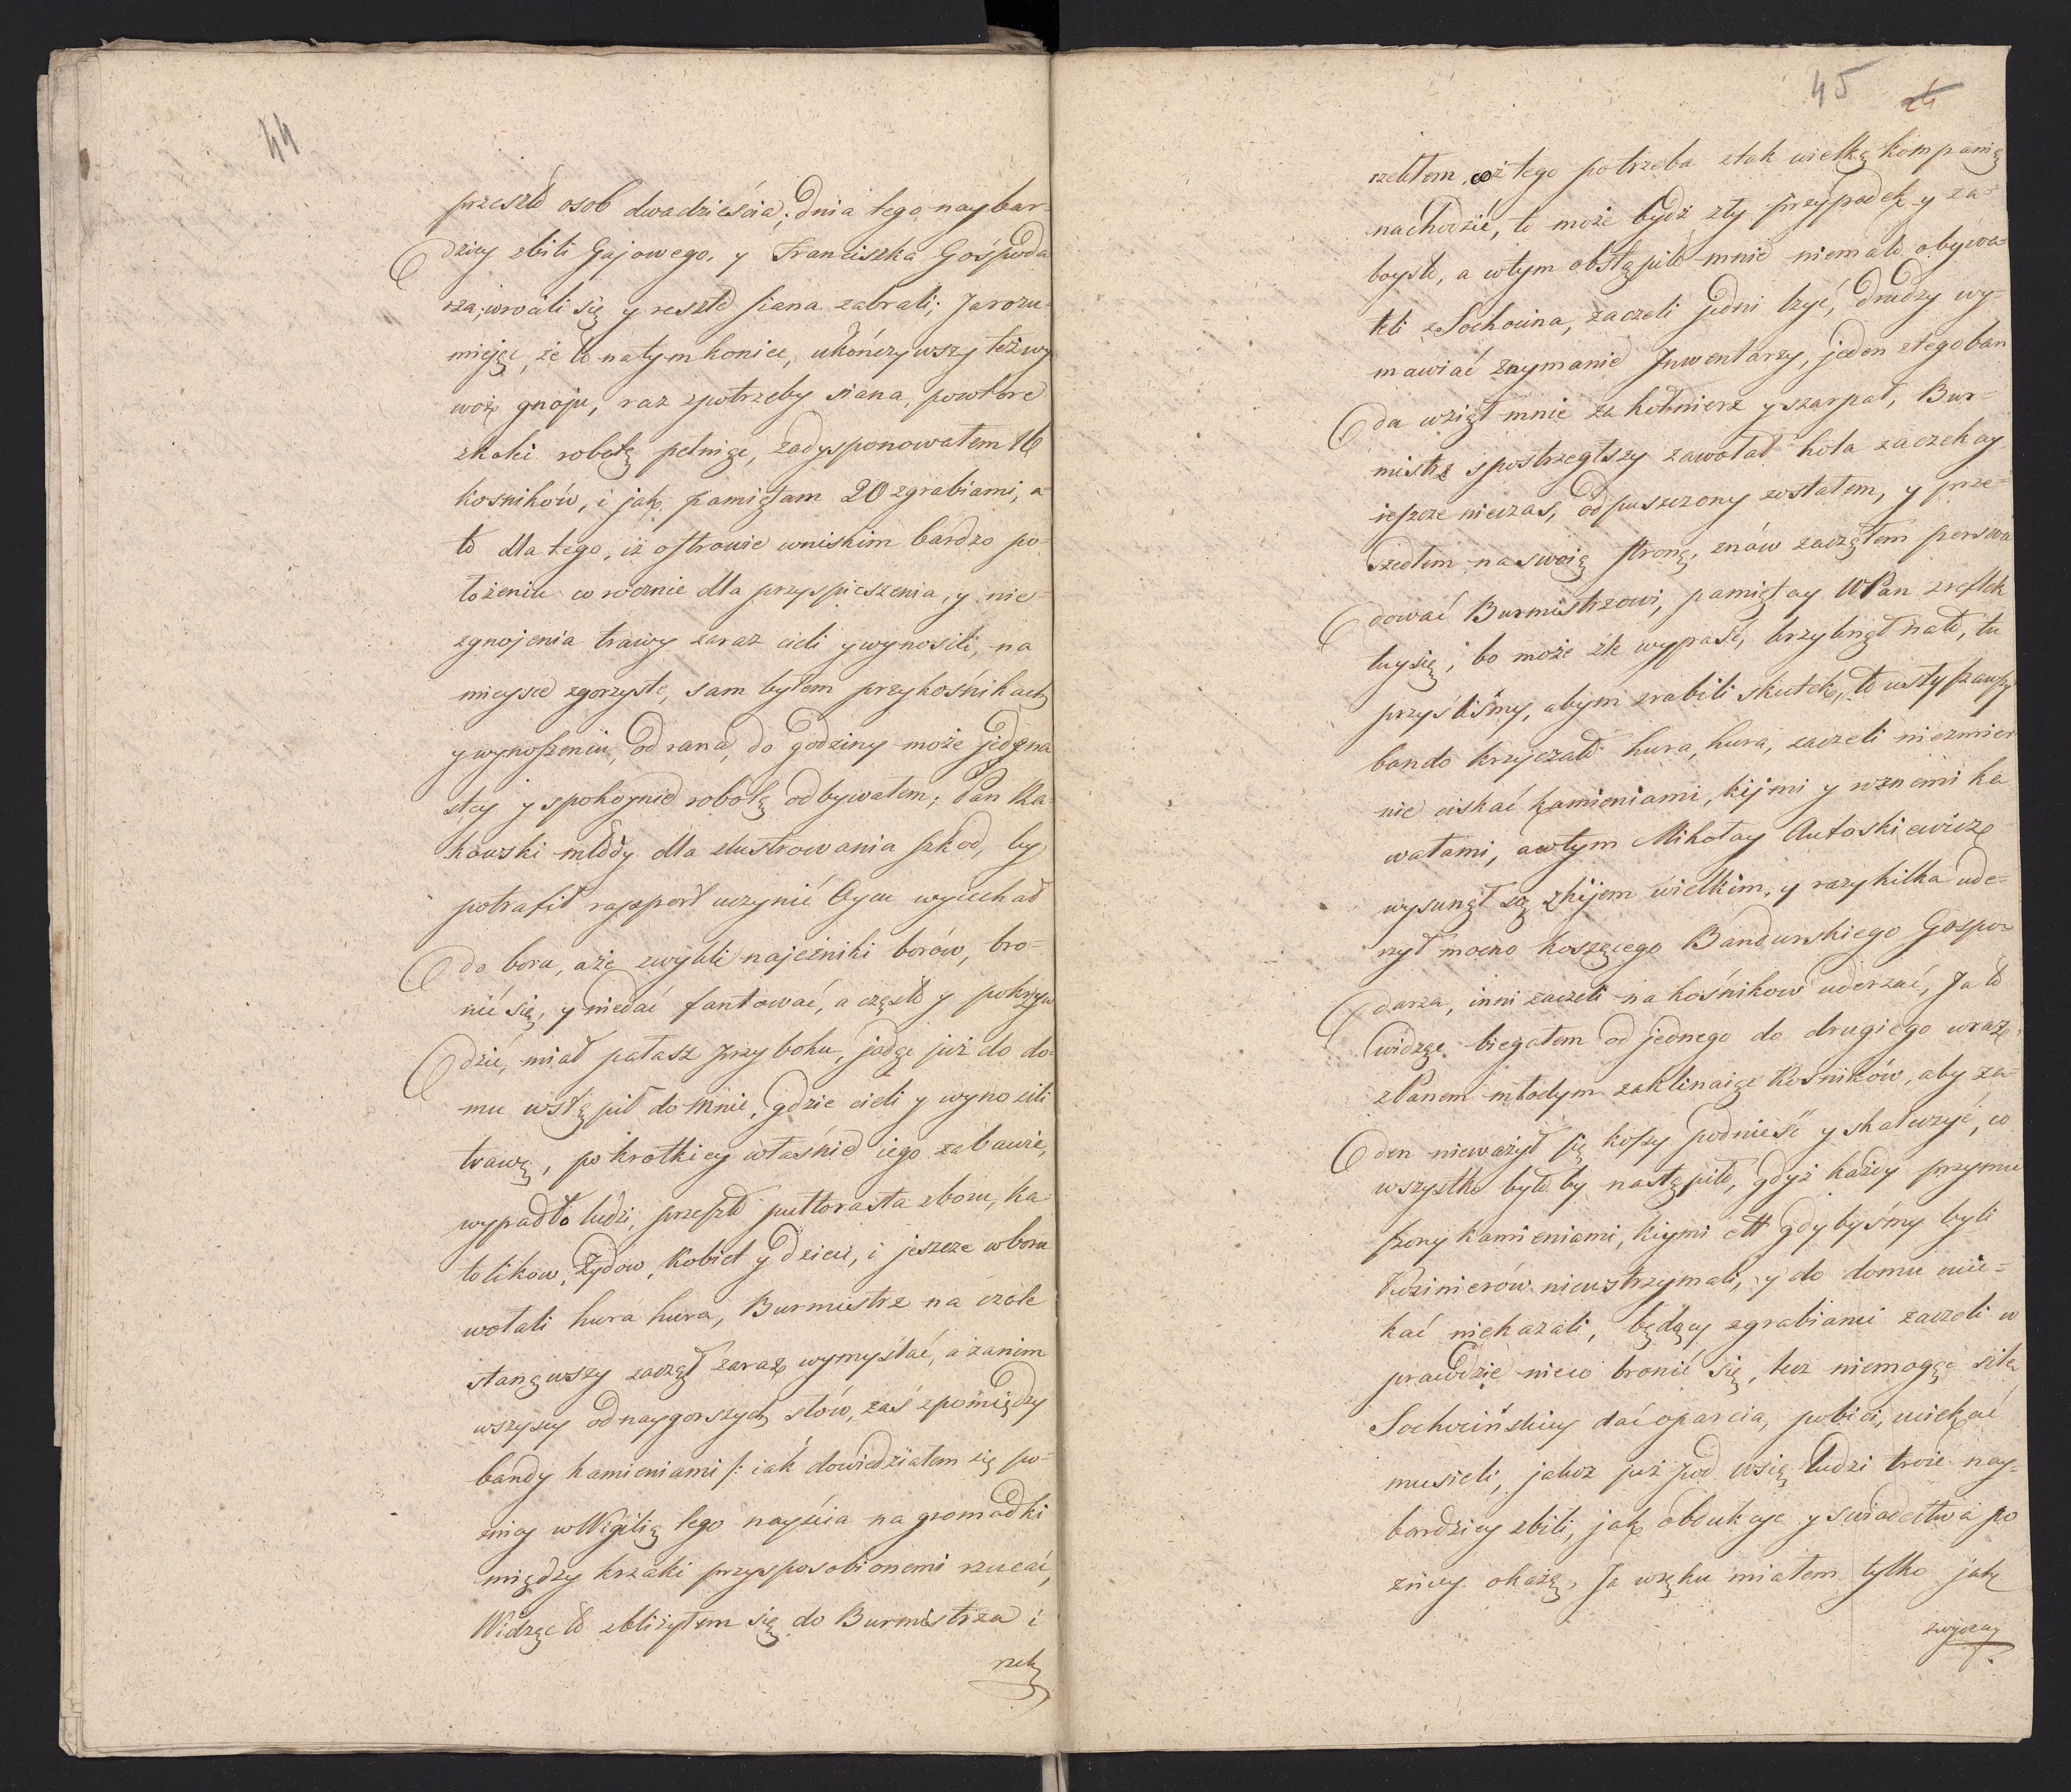 44
przeszło osob dwadzieścia; dnia tego naybar-
dziey zbili Gajowego, y Franciszka Gospoda
rza; wrocili się y resztę siana zabrali; Ja rozu-
miejąc, że to na tym koniec, ukończywszy też wy
woz gnoju, raz z potrzeby siana, powtore
z koki robotę pełniąc, zadysponowałem 16
kosników, i jak pamiętam 20 z grabiami, a
to dla tego, iż ostrowie w niskim bardzo po-
łożeniu co rocznie dla przyspieszenia, y nie-
zgnojenia trawy zaraz cieli y wynosili, na
mieysce zgorzyste, sam byłem przy kośnikach
y wynoszeniu, od rana, do godziny może jedena
stey y spokoynie robotę odbywałem; Pan Ra-
kowski młody dla zlustrowania szkod, by
potrafił rapport uczynić Oycu wyiechał
do boru, a że zwykli najezniki borów, bro-
nić się, y niedać fantować, a często y pokrzyw
dzić, miał pałasz przy boku, jadąc już do do-
mu wstąpił do mnie, gdzie cieli y wynosili
trawę, po krotkiey właśnie iego zabawie,
wypadło ludzi, przeszło pułtorasta z boru, Ka-
tolikow, Żydow, Kobiet y dzieci, i jeszcze w boru
wołali hura hura, Burmistrz na czele
stanąwszy zaczął zaraz wymyślać, a za nim
wszyscy od naygorszych słów, zaś z pomiędzy
bandy kamieniami /: iak dowiedziałem się po-
zniey w Wigilią tego nayścia na gromadki
między krzaki przysposobionemi rzucać,
Widząc to zbliżyłem się do Burmistrza i
rzek
45 24
rzekłem, coż tego potrzeba z tak wielką kompanią
nachodzić, to może bydź zły przypadek y za-
boystwo, a w tym obstąpiło mnie niemało obywa-
teli z Sochocina, zaczeli jedni łzyć, drudzy wy-
mawiać zaymanie Inwentarzy, jeden z tego ban
da wziął mnie za kołnierz y szarpał, Bur-
mistrz spostrzegłszy zawołał hola zaczekay
ieszcze nieczas, odpuszczony zostałem, y prze-
szedłem na swoią stronę, znów zacząłem perswa
dować Burmistrzowi, pamiętay WPan zreflek
tuy się, bo może źle wypaść, krzyknął na to, tu
przyśliśmy, abym zrobili skutek, to usłyszawszy
bando krzyczało hura, hura, zaczeli niezmier
nie ciskać kamieniami, kijmi y rznemi ka
wałami, a w tym Mikołay Antoskiewicz
wysunął się z kijem wielkim, y razy kilka ude-
rzył mocno koszącego Bandurskiego Gospo-
darza, inni zaczeli na kośnikow uderzać, Ja to
widząc biegałem od jednego do drugiego wraz
z Panem młodym zaklinaiąc Kosników, aby ża-
den nieważył się kosy podnieść y skaleczyć, co
wszystko było by nastąpiło, gdyż każdy przymu
szony kamieniami, kiymi ett gdy byśmy byli
kośnierów nieustrzymali, y do domu ucie-
kać niekazali, będący z grabiami zaczeli w
prawdzie nieco bronić się, lecz niemogąc siłę
Sochocińskiey dać oparcia, pobici, uciekać
musieli, jakoż już pod wsią ludzi troie nay-
bardziey zbili, jak obdukcye y swiadectwa po
zniey okażą, Ja w ręku miałem tylko jak
zwyczay